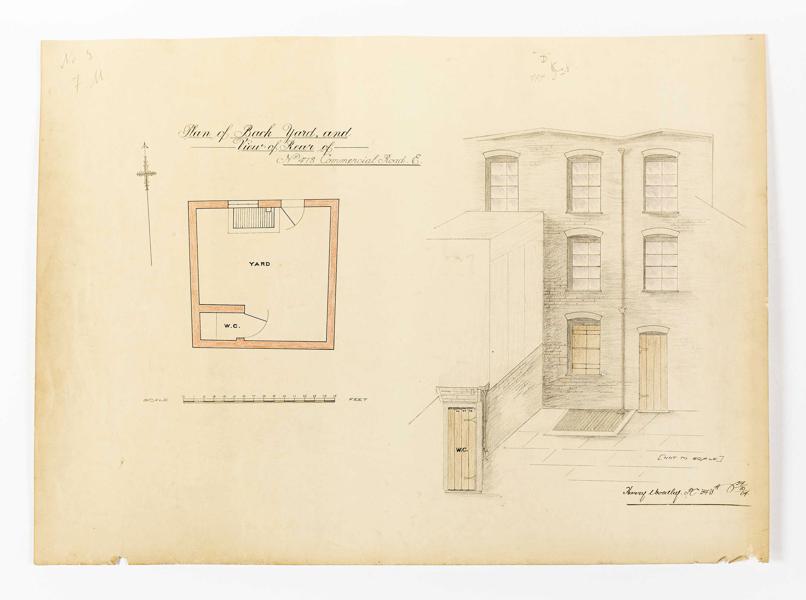 No 3
7 M
Plan of Back Yard, and
View of Rear of
Nº 413 Commercial Road E.
YARD
W.C.
SCALE FEET
W.C.
[NOT TO SCALE]
Harry Woodley. P.C.